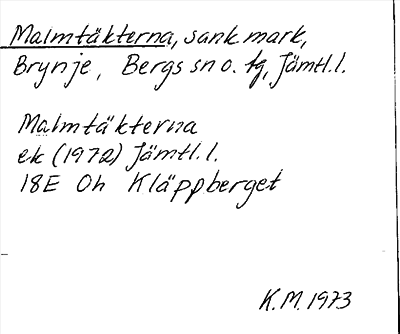 Malmtäkterna, sank mark,
Brynje, Bergs sn o. tg, Jämtl. l.
Malmtäkterna
ek (1972) Jämtl. l.
18E Oh Kläppberget
K.M. 1973